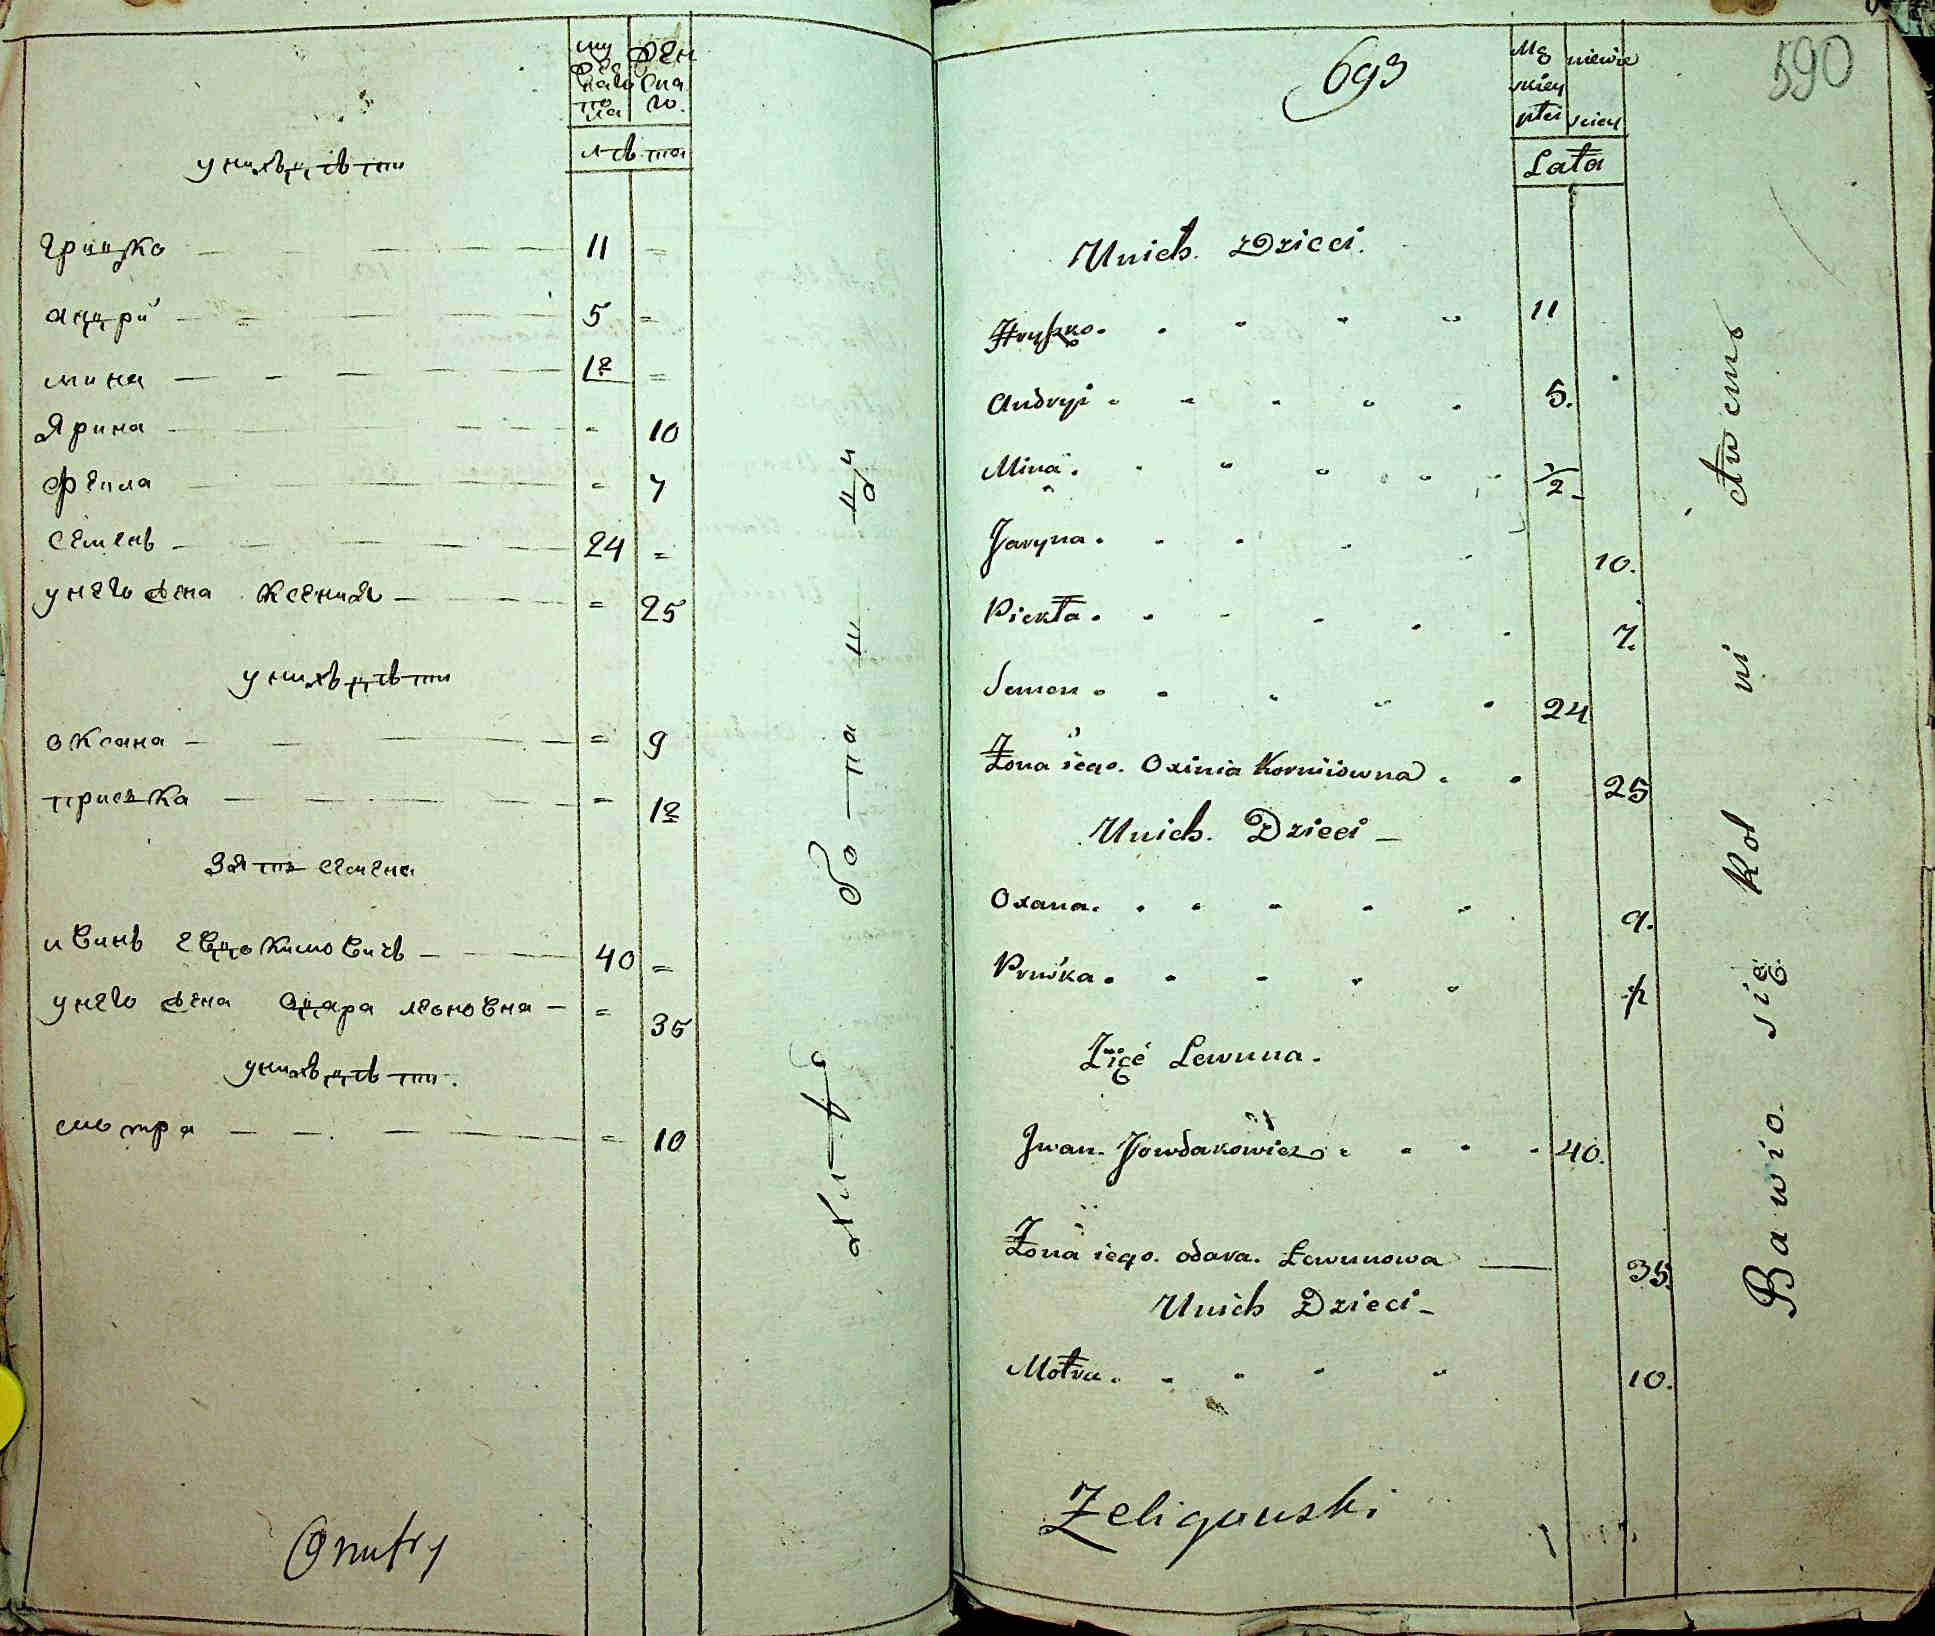 мужескаго пола
женскаго
лѣта
у нихъ дѣти
грицко 11 =
андрій 5 =
мина 1/2 =
Ярина = 10
феѣла = 7
семенъ 24 =
у него жена Ксения = 25
у нихъ дѣти
оксана = 9
приська = 1/2
Зять семена
иванъ евдокимовичъ 40 =
у него жена одара леоновна = 35
у нихъ дѣти.
мотра = 10
Onufry
693
590
Męskiey płci
niewieściey
Lata
U nich Dzieci.
Hryszko. 11
Andryi 5.
Mina. 1/2
Jaryna. 10.
Piekła. 7.
Semen 24
Żona iego. Oxinia Korniiowna 25
U nich. Dzieci
Oxana. 9.
Pruśka. 1/2
Zięć Lewuna.
Iwan. Jowdakowicz 40.
Żona iego. odara. Lewunowa 35.
U nich Dzieci
Motra. 10.
Zeligowski
Bawio. się Rolnictwem